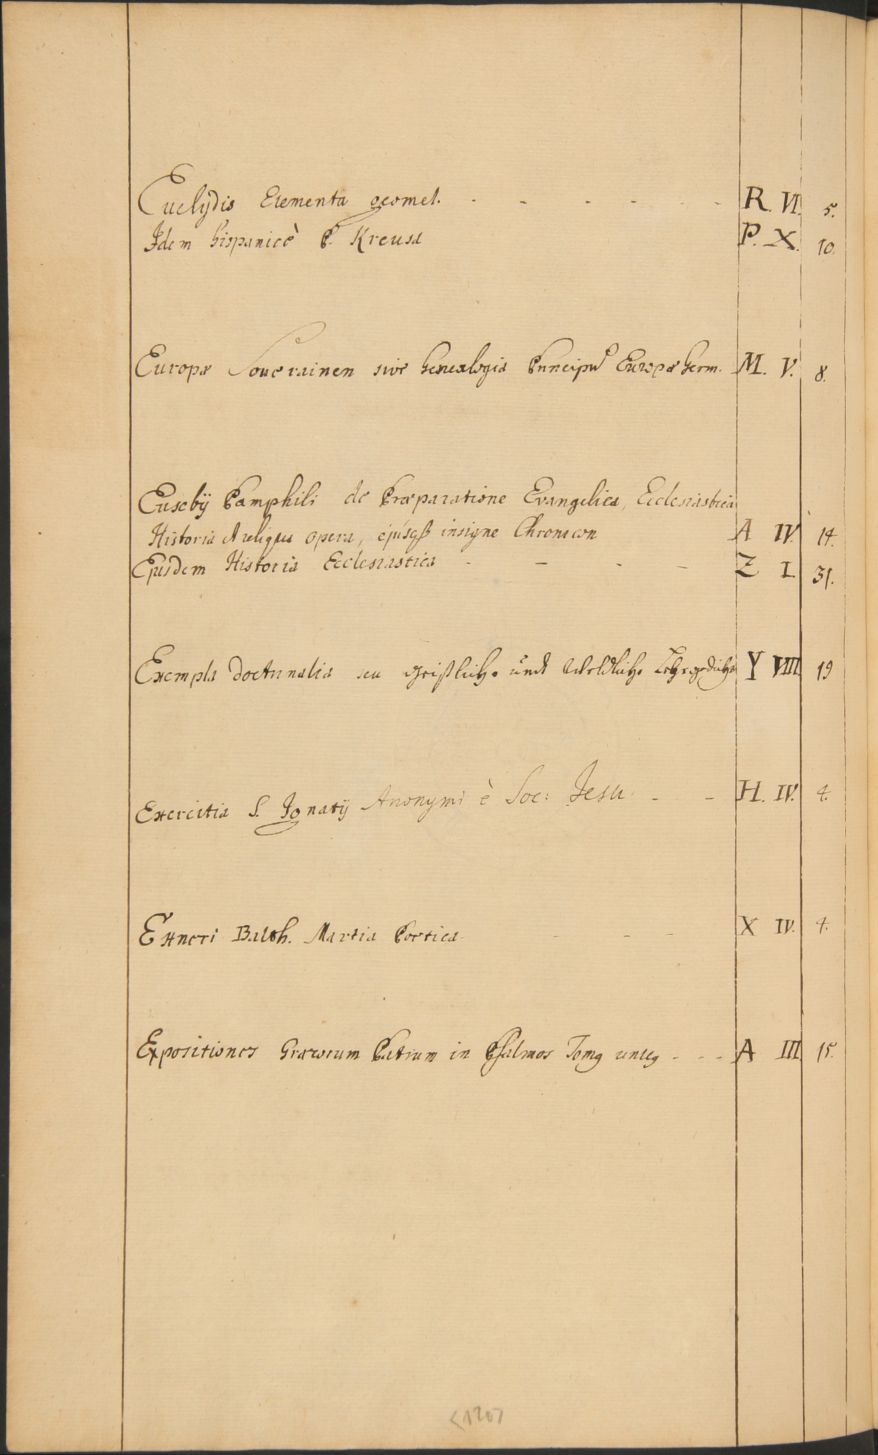 Euclydis Elementa geomet. - - - - - - R. VI. 5.
Idem hispanicè P. Kresa P. X. 10.
Europæ Souverainen sive Genealogia Principū Europæ Germ. M. V. 8.
Eusebij Pamphili de Præparatione Evangelica, Ecclesiastica
Historia et reliqua opera, ejusqß insigne Chronicon A IV. 14.
Ejusdem Historia Ecclesiastica - - - - Z I. 31.
Exempla doctrinalia seu geistliche undt Weldtliche Lehrgedichte Y VIII 19
Exercitia S. Ignatij Anonymi è Soc: Jesu. - - H. IV. 4.
Exneri Balth. Martia Poetica - - - X IV. 4.
Expositiones Græcorum Patrum in Psalmos Tomq unicq - - - A III 15.
<120>